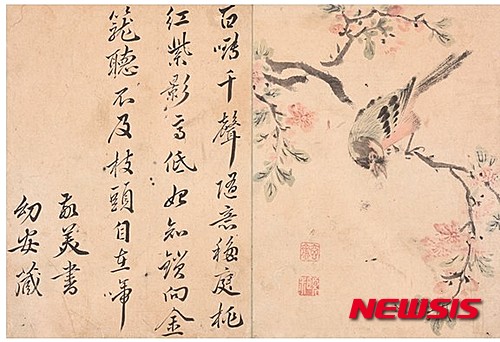 百囀千聲隨意移庭桃
紅紫影高低始知鎖向金
籠聽不及枝頭自在啼
敬美書
幼安藏
NEWSIS